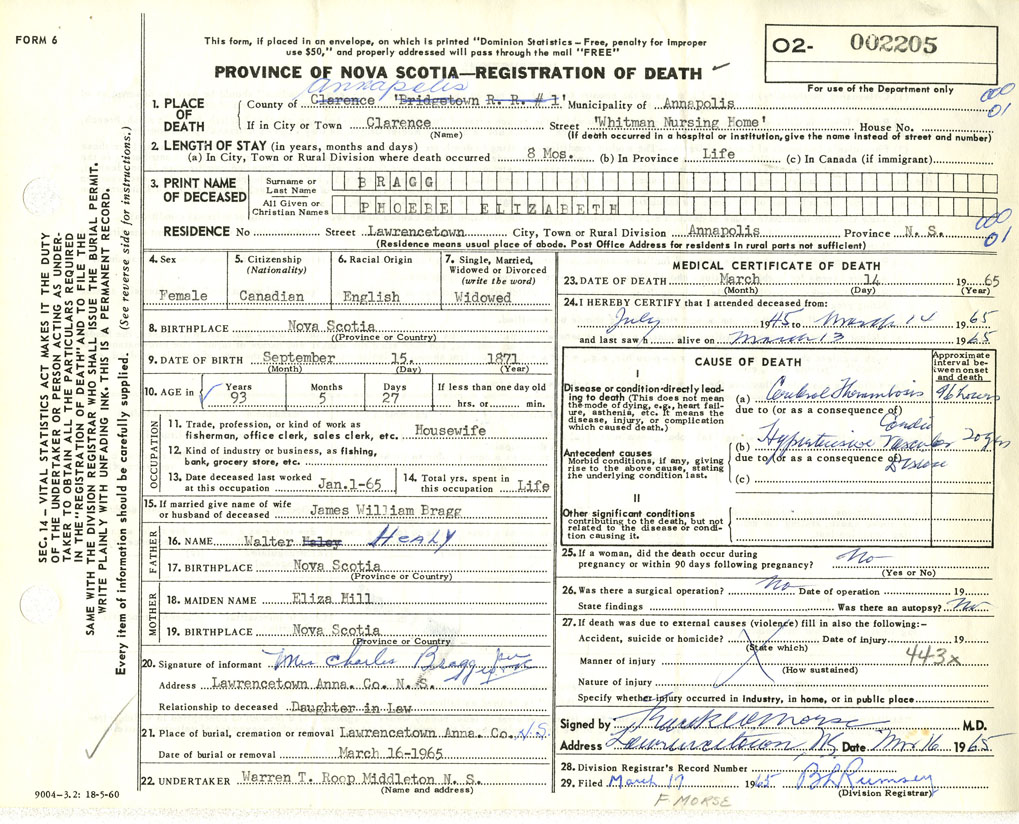 FORM 6
This form, if placed in an envelope, on which is printed "Dominion Statistics – Free, penalty for Improper
use $50," and properly addressed will pass through the mail "FREE"
PROVINCE OF NOVA SCOTIA—REGISTRATION OF DEATH
O2- 002205
For use of the Department only
Annapolis
1. PLACE OF DEATH
County of Clarence 'Bridgetown R. R. # 1' Municipality of Annapolis
If in City or Town Clarence Street 'Whitman Nursing Home' House No.
(Name) (If death occurred in a hospital or institution, give the name instead of street and number)
000
01
2. LENGTH OF STAY (in years, months and days)
(a) In City, Town or Rural Division where death occurred 8 Mos. (b) In Province Life (c) In Canada (if immigrant)
3. PRINT NAME OF DECEASED
Surname or Last Name BRAGG
All Given or Christian Names PHOEBE ELIZABETH
RESIDENCE No Street Lawrencetown City, Town or Rural Division Annapolis Province N. S.
(Residence means usual place of abode. Post Office Address for residents in rural parts not sufficient)
000
01
4. Sex Female
5. Citizenship (Nationality) Canadian
6. Racial Origin English
7. Single, Married, Widowed or Divorced (write the word) Widowed
8. BIRTHPLACE Nova Scotia
((Province or Country)
9. DATE OF BIRTH September 15. 1871
(Month) (Day) (Year)
10. AGE in Years 93 Months 5 Days 27 If less than one day old hrs. or min.
OCCUPATION
11. Trade, profession, or kind of work as fisherman, office clerk, sales clerk, etc. Housewife
12. Kind of industry or business, as fishing, bank, grocery store, etc.
13. Date deceased last worked at this occupation Jan.1-65
14. Total yrs. spent in this occupation Life
15. If married give name of wife or husband of deceased James William Bragg
FATHER
16. NAME Walter Haley HEALY
17. BIRTHPLACE Nova Scotia
(Province or Country)
MOTHER
18. MAIDEN NAME Eliza Hill
19. BIRTHPLACE Nova Scotia
(Province or Country
20. Signature of informant Mrs Charles Bragg per
Address Lawrencetown Anna. Co. N. S.
Relationship to deceased Daughter in Law
21. Place of burial, cremation or removal Lawrencetown Anna. Co. N.S.
Date of burial or removal March 16-1965
22. UNDERTAKER Warren T. Roop Middleton N. S.
(Name and address)
9004–3.2: 18-5-60
MEDICAL CERTIFICATE OF DEATH
23. DATE OF DEATH March 14 1965
(Month) (Day) (Year)
24. I HEREBY CERTIFY that I attended deceased from:
July 1945 to March 14 1965
and last saw h alive on March 13 1965
CAUSE OF DEATH
Approximate interval between onset and death
I
Disease or condition directly leading to death (This does not mean the mode of dying, e.g., heart failure, asthenia, etc. It means the disease, injury, or complication which caused death.)
(a) Cerebral Thrombosis 96 hours
due to (or as a consequence of)
Cardio
(b) Hypertensive Vascular 20 yrs
Disease
due to (or as a consequence of)
(c)
Antecedent causes
Morbid conditions, if any, giving rise to the above cause, stating the underlying condition last.
II
Other significant conditions
contributing to the death, but not related to the disease or condition causing it.
25. If a woman, did the death occur during pregnancy or within 90 days following pregnancy? No
(Yes or No)
26. Was there a surgical operation? No Date of operation 19
State findings Was there an autopsy? No
27. If death was due to external causes (violence) fill in also the following:-
Accident, suicide or homicide? Date of injury 19
(State which) 443x
Manner of injury
(How sustained)
Nature of injury
Specify whether injury occurred in Industry, in home, or in public place
Signed by M.D.
Address Lawrencetown, NS Date Mar 16 1965
28. Division Registrar's Record Number
29. Filed March 17 1965 B L Rumsey
(Division Registrar)
F. MORSE
SEC. 14 – VITAL STATISTICS ACT MAKES IT THE DUTY
OF THE UNDERTAKER OR PERSON ACTING AS UNDER-
TAKER TO OBTAIN ALL THE PARTICULARS REQUIRED
IN THE "REGISTRATION OF DEATH" AND TO FILE THE
SAME WITH THE DIVISION REGISTRAR WHO SHALL ISSUE THE BURIAL PERMIT.
WRITE PLAINLY WITH UNFADING INK. THIS IS A PERMANENT RECORD.
Every item of information should be carefully supplied. (See reverse side for instructions.)